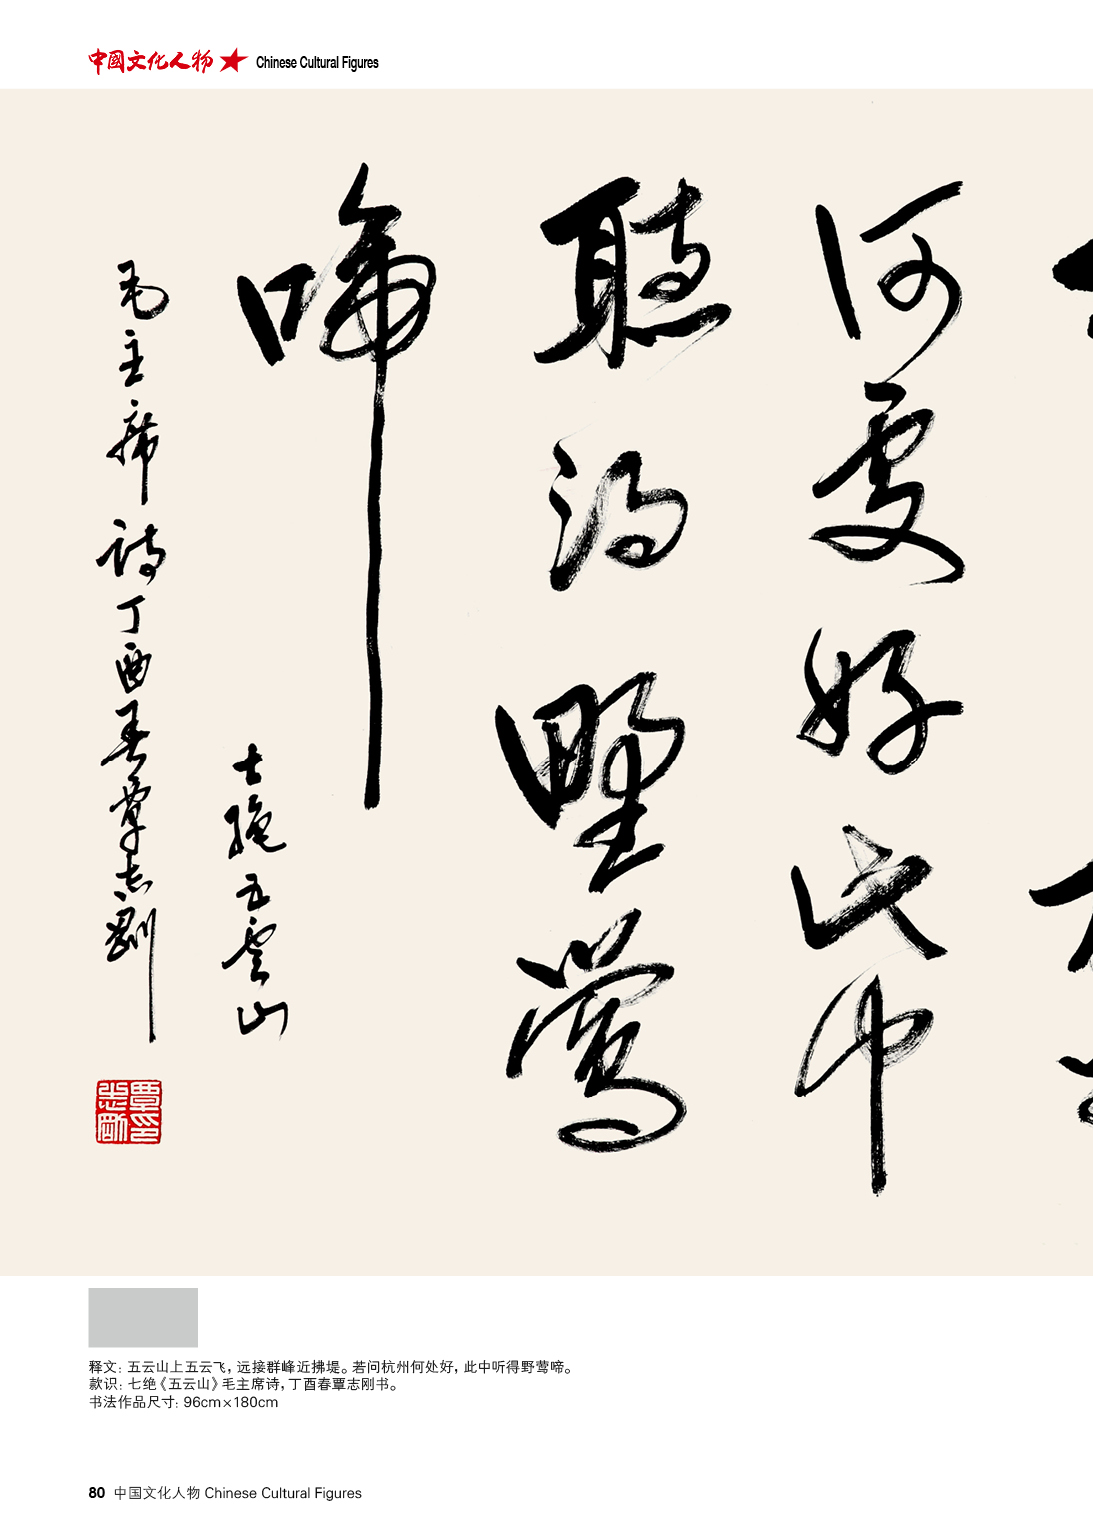 中國文化人物 ★ Chinese Cultural Figures
何處好此中
聽得野鶯
啼
七绝五雲山
毛主席诗丁酉春覃志刚
覃印志刚
释文：五云山上五云飞，远接群峰近拂堤。若问杭州何处好，此中听得野莺啼。
款识：七绝《五云山》毛主席诗，丁酉春覃志刚书。
书法作品尺寸：96cm×180cm
80 中国文化人物 Chinese Cultural Figures